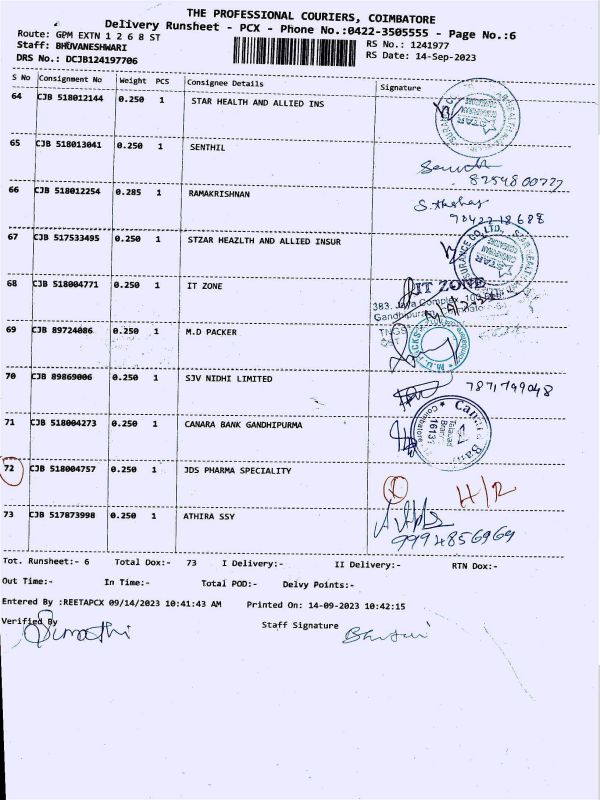 THE PROFESSIONAL COURIERS, COIMBATORE
Delivery Runsheet - PCX - Phone No.:0422-3505555 - Page No.:6
Route: GPM EXTN 1 2 6 8 ST
RS No.: 1241977
Staff: BHUVANESHWARI
RS Date: 14-Sep-2023
DRS No.: DCJB124197706
S No Consignment No Weight PCS Consignee Details Signature
64 CJB 518012144 0.250 1 STAR HEALTH AND ALLIED INS
STAR
65 CJB 518013041 0.250 1 SENTHIL
66 CJB 518012254 0.285 1 RAMAKRISHNAN
67 CJB 517533495 0.250 1 STZAR HEAZLTH AND ALLIED INSUR
STAR
68 CJB 518004771 0.250 1 IT ZONE
IT ZONE
69 CJB 89724086 0.250 1 M.D PACKER
70 CJB 89869006 0.250 1 SJV NIDHI LIMITED
7871799048
71 CJB 518004273 0.250 1 CANARA BANK GANDHIPURMA
72 CJB 518004757 0.250 1 JDS PHARMA SPECIALITY
H/R
73 CJB 517873998 0.250 1 ATHIRA SSY
9994856969
Tot. Runsheet:- 6 Total Dox:- 73 I Delivery:- II Delivery:- RTN Dox:-
Out Time:- In Time:- Total POD:- Delvy Points:-
Entered By :REETAPCX 09/14/2023 10:41:43 AM Printed On: 14-09-2023 10:42:15
Verified By Staff Signature